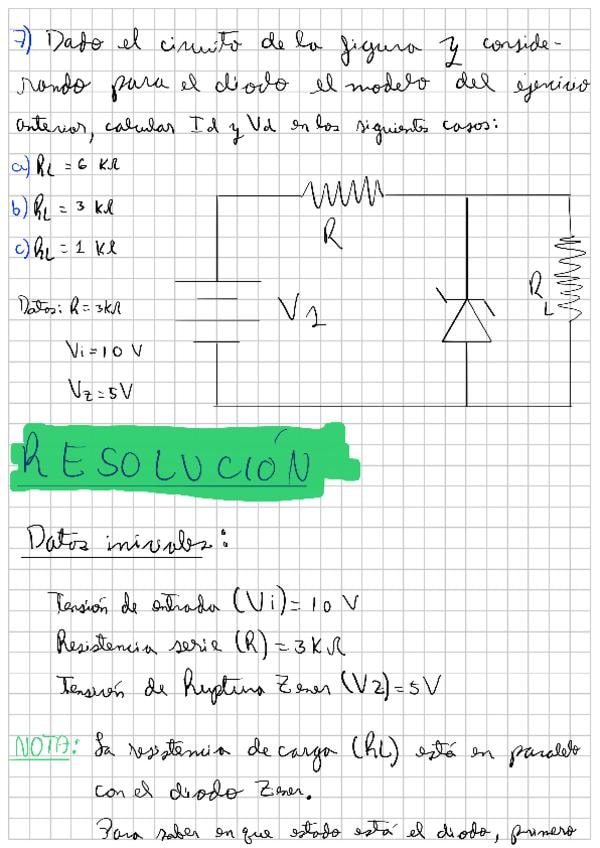 7) Dado el circuito de la figura y conside-
rando para el diodo el modelo del ejercicio
anterior, calcular Id y Vd en los siguientes casos:
a) RL = 6 KΩ
b) RL = 3 KΩ
c) RL = 1 KΩ
R
RL
V1
Datos: R = 3KΩ
Vi = 10 V
Vz = 5V
RESOLUCIÓN
Datos iniciales:
Tensión de entrada (Vi) = 10 V
Resistencia serie (R) = 3 KΩ
Tensión de Ruptura Zener (Vz) = 5V
NOTA: La resistencia de carga (RL) está en paralelo
con el diodo Zener.
Para saber en que estado está el diodo, primero